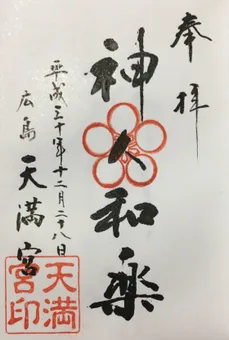 奉拝
神人和楽
平成三十年十二月二十八日
広島 天満宮
天満
宮印